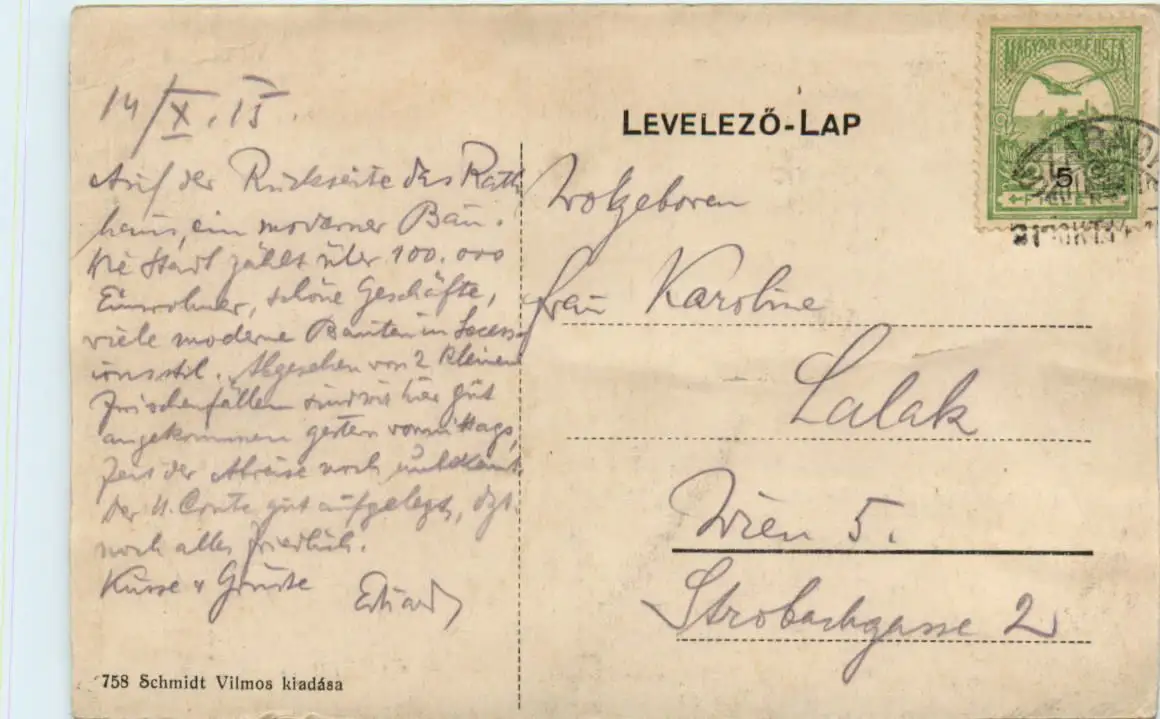 14/X. 15.
Auf der Rückseite das Rath
haus, ein moderner Bau.
Die Stadt zählt über 100.000
Einwohner, schöne Geschäfte,
viele moderne Bauten im Secess-
ionsstil. Abgesehen von 2 kleinen
Zwischenfällen sind wir hier gut
angekommen gestern vormittags,
Zeit der Abreise noch unbekannt.
Der H. gut aufgelegt,
noch alles friedlich.
Küsse u Grüsse
758 Schmidt Vilmos kiadása
LEVELEZŐ-LAP
MAGYAR KIR. POSTA
5
FILLÉR
Wolgeboren
Frau Karoline
Lalák
Wien 5.
Strobachgasse 2